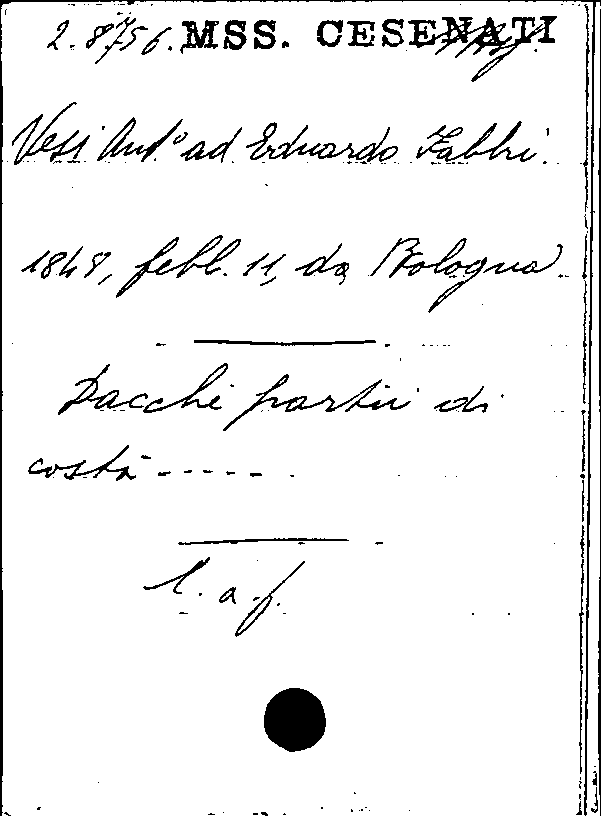 2.8756. MSS. CESENATI
Vesi Ant.º ad Eduardo Fabbri.
1848, febb. 11, da Bologna
Dacché partii di
costà -----.
l. a. f.